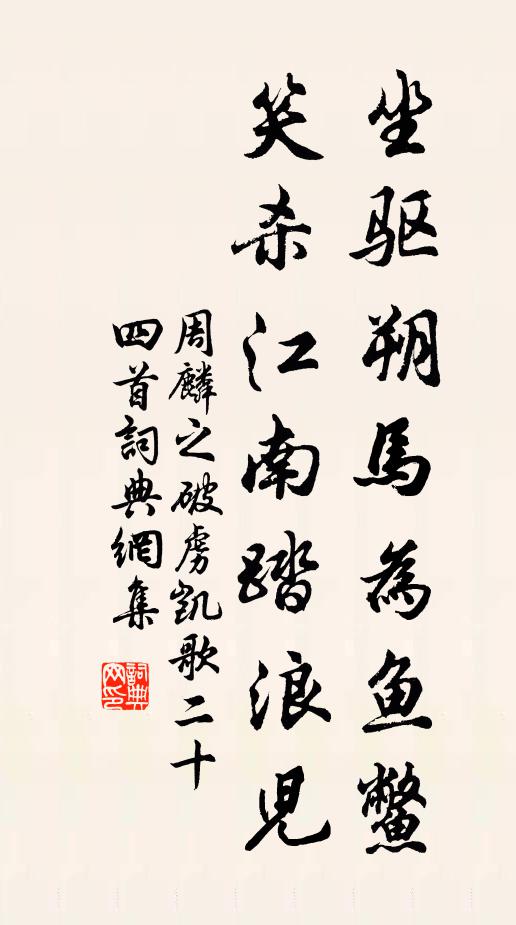 坐驱朔馬為鱼鱉
笑杀江南踏浪児
周麟之破虏凯歌二十
四首詞典網集
詞典網印